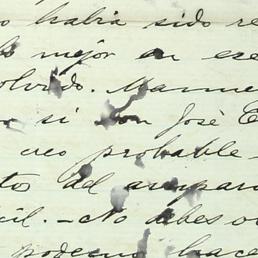 habia sido re
mejor en ese
olvido. Manue
si con José E
creo probable
tos del ampar
cil. - No debes o
podemos hace